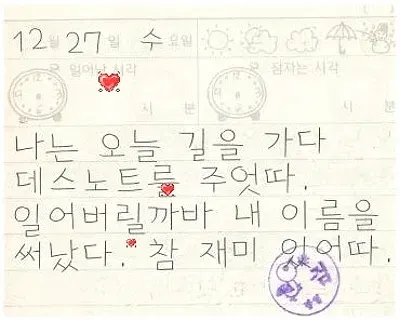 12월 27일 수요일
일어난 시각 잠자는 시각
시 분 시 분
나는 오늘 길을 가다
데스노트를 주엇따.
일어버릴까바 내 이름을
써놨다. 참 재미 있어따.